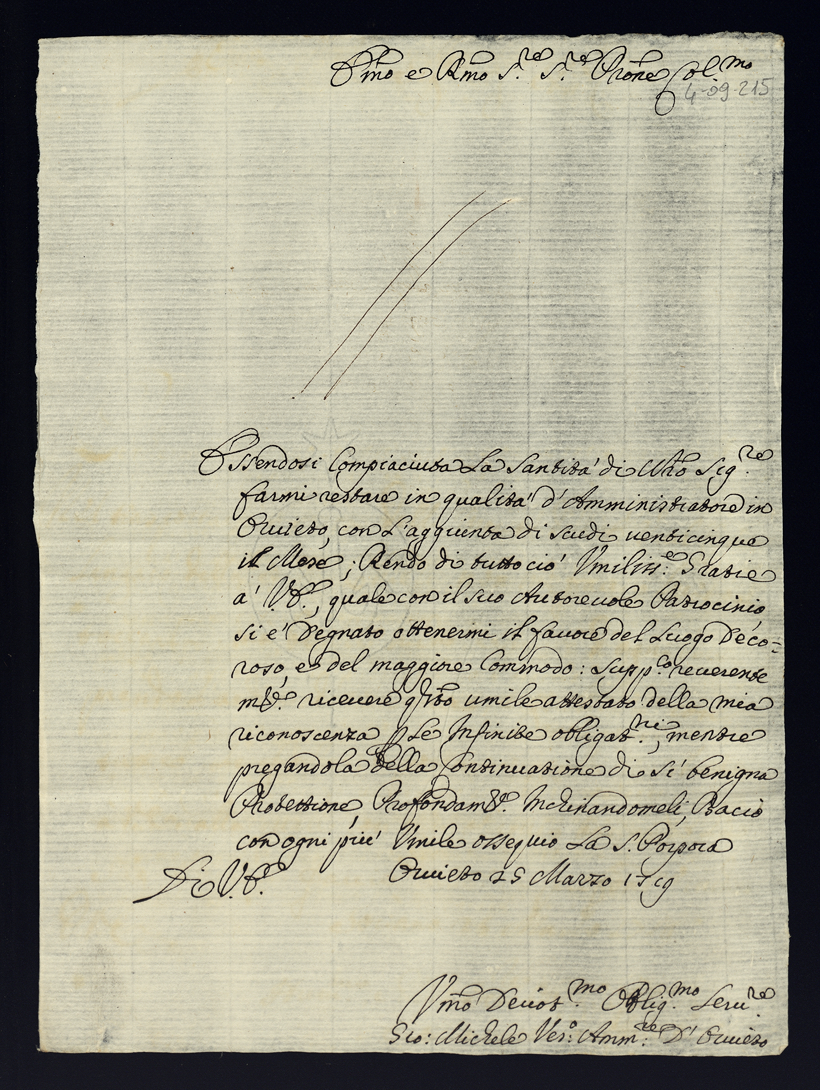 Em̃o e Rmo S.re S.re Prõne Col.mo
4-09-215
Essendosi Compiaciuta La Santità di Nr̃o Sig.re
farmi restare in qualità d'Amministratore in
Orvieto, con L'aggiunta di scudi venticinque
il Mese; Rendo di tutto ciò Vmiliss.e Gratie
a' V.E., quale con il suo Autoreuole Patrocinio
si è Degnato ottenermi il fauore del Luogo Deco-
roso, e del maggiore Commodo: supp.co reuerente
m.te riceuere q̃sto umile attestato della mia
riconoscenza p Le Infinite obligat.ni, mentre
pregandola della Continuatione di sì benigna
Protettione, Profondam.te Inchinandomeli, Bacio
con ogni più Vmile ossequio La S. Porpora
Di V.E. Orvieto 25 Marzo
Vm̃o Deuot.mo Oblig.mo Seru.re
Gio: Michele Ves.o Amm.re D'Orvieto